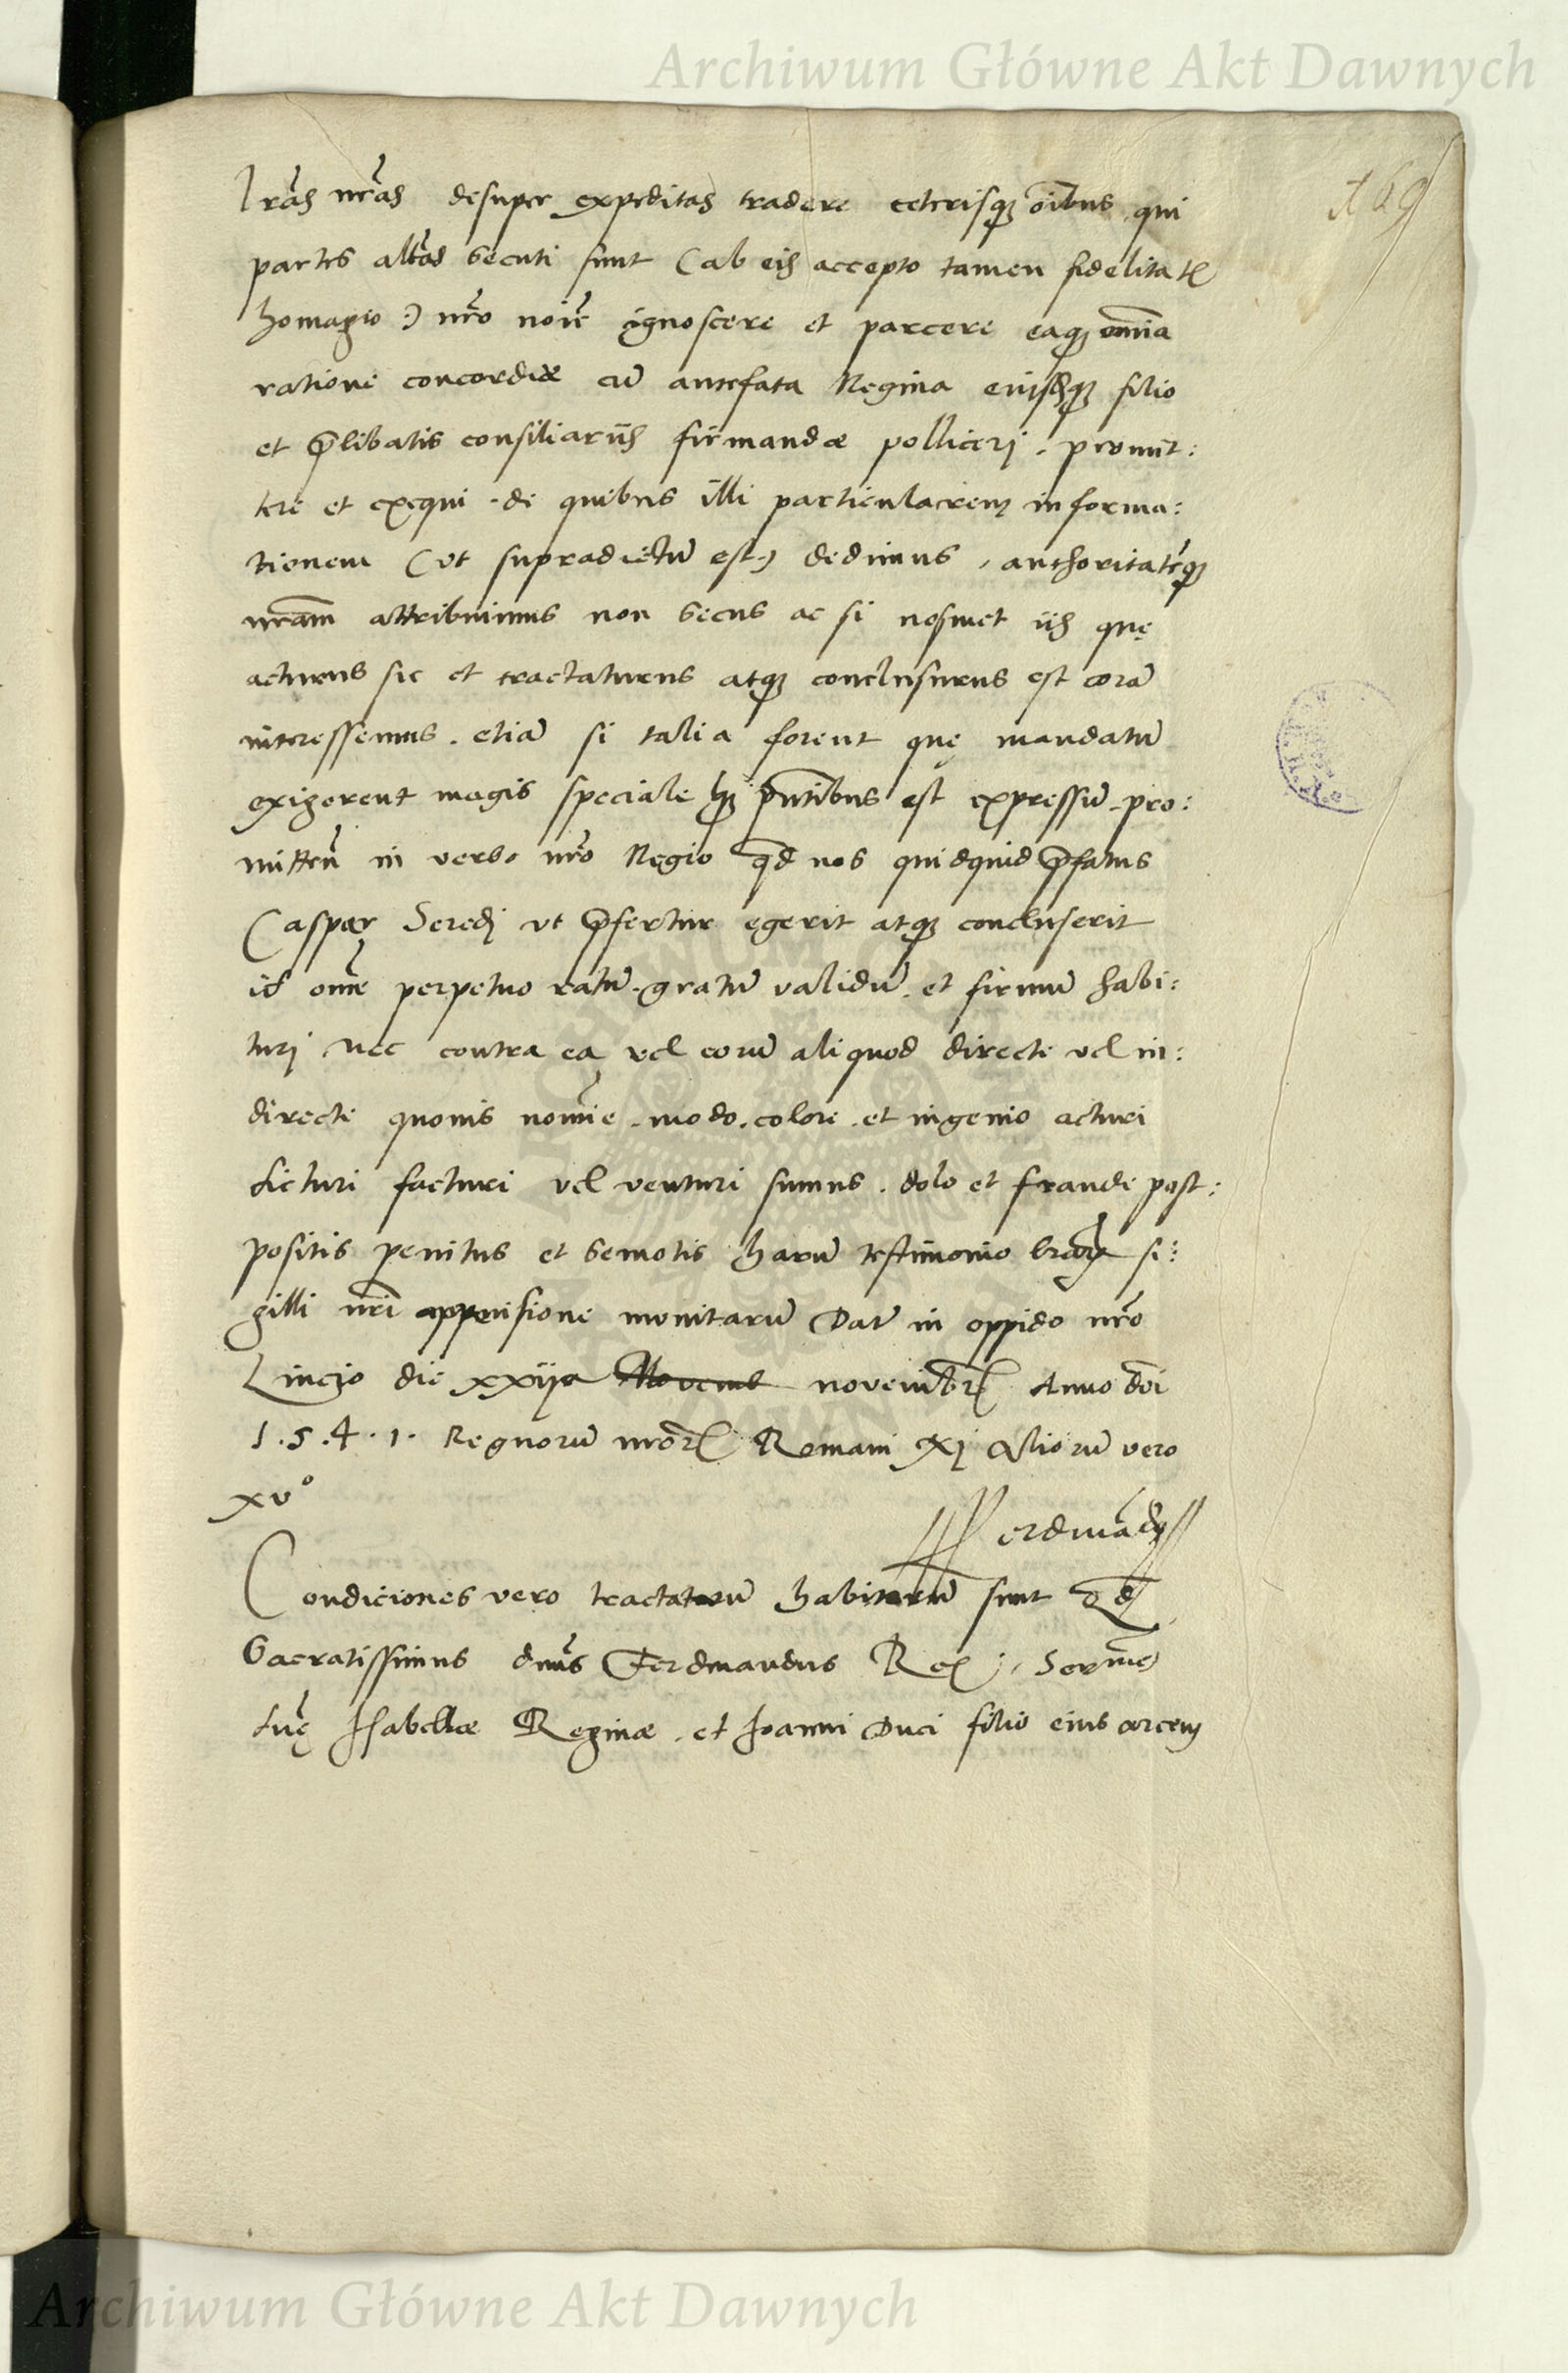 Archiwum Główne Akt Dawnych
169
lrãs nrãs desuper expeditas tradere ceterisq̃ oĩbus qui
partes altãs secuti sunt (ab eis accepto tamen fidelitatꝭ
homagio :) nrõ noĩe ignoscere et parcere eaq̃ omĩa
ratione concordiæ cũ antefata Regina eiusq̃ filio
et p̃libatis consiliariis firmandæ pollicerj . promit:
tere et exequi . de quibus illi particularem informa:
tionem (vt supradictũ est) dedimus , authoritatẽq̃
nrãm attribuimus non secus ac si nosmet iis quę
acturus sic et tractaturus atq̃ conclusurus est corã
interessemus . etiã si talia forent quę mandatũ
exigerent magis speciale q̃ p̃ntibus est expressũ . pro:
mitteñ in verbo nrõ Regio qd̃ nos quidquid p̃fatus
Caspar Seredj vt p̃fertur egerit atq̃ concluserit
id omẽ perpetuo ratũ . gratũ validũ . et firmũ habi:
turj nec contra ea vel eorũ aliquod directe vel in:
directe quouis nomĩe . modo . colore . et ingenio acturi
dicturi facturi vel venturi sumus . dolo et fraude post:
positis penitus et semotis harũ testimonio lrãrꝝ si:
gilli nrĩ appensione monitarũ Datũ in oppido nrõ
Linczio die xxija novembrꝭ Anno dñi
1 . 5 . 4 . 1 . Regnorũ nrõrꝝ Romani xj Aliorũ vero
xvº
Ferdinãdꝯ
Condiciones vero tractatorũ habitorũ sunt
Sacratissimus dnũs Ferdinandus Rex : Sermẽ
Isabellæ Reginæ . et Joanni Duci filio eius arcem
Archiwum Główne Akt Dawnych